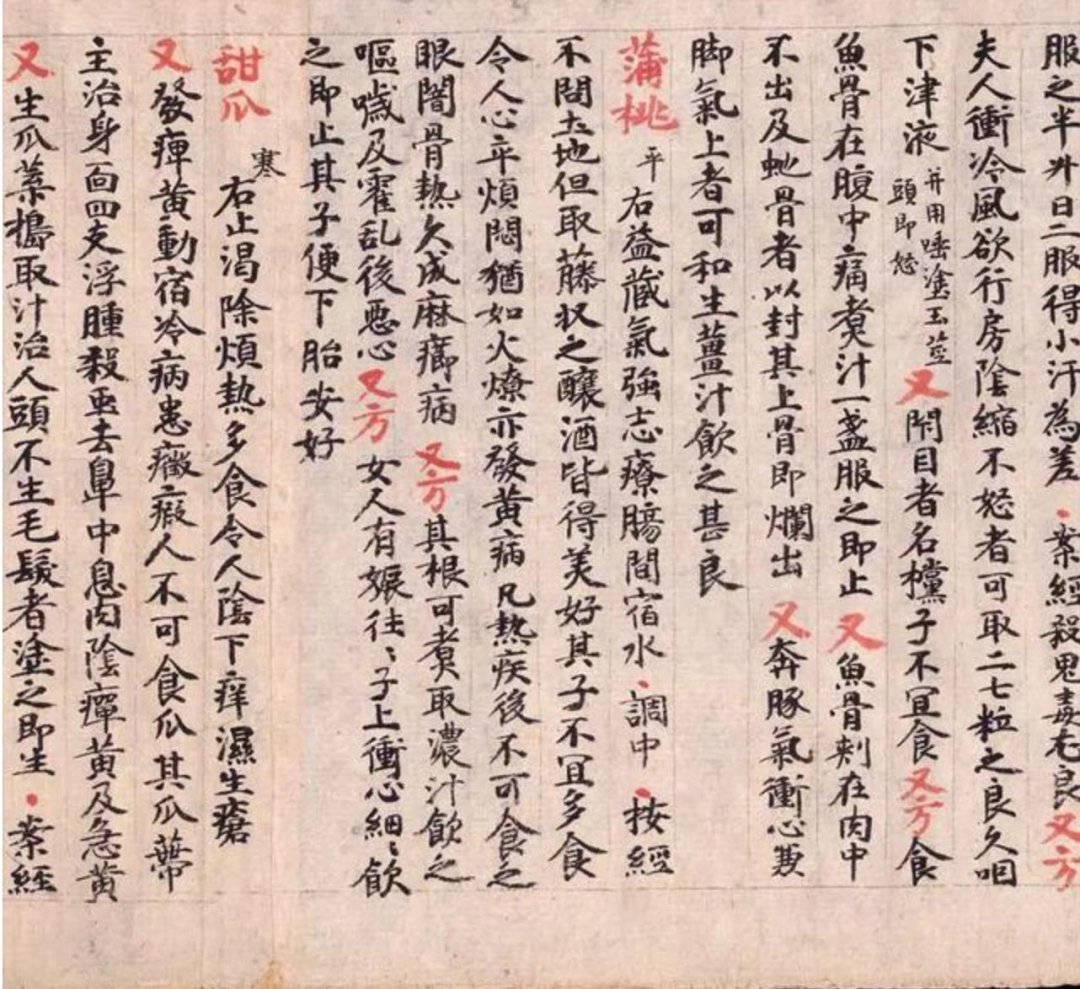 服之半升日二服得小汗為差・案經殺鬼毒尤良又方
夫人衝冷風欲行房陰縮不怒者可取二七粒之良久咽
下津液并用唾塗玉莖頭即怒又閇目者名欓子不冝食又方食
魚骨在腹中痛煑汁一盞服之即止又魚骨刾在肉中
不出及虵骨者以封其上骨即爛出又奔豚氣衝心兼
脚氣上者可和生薑汁飲之甚良
蒲桃平右益藏氣強志療腸間宿水・調中・按經
不問土地但取藤収之釀酒皆得美好其子不冝多食
令人心卒煩悶猶如火燎亦發黃病凡熱疾後不可食之
眼闇骨熱久成麻癤病又方其根可煑取濃汁飲之
嘔噦及霍乱後惡心又方女人有娠往々子上衝心細々飲
之即止其子便下胎安好
甜瓜寒右止渴除煩熱多食令人陰下痒濕生瘡
又發痺黃動宿冷病患癥瘕人不可食瓜其瓜蔕
主治身面四支浮腫殺蠱去鼻中息肉陰癉黃及急黃
又生瓜葉搗取汁治人頭不生毛髮者塗之即生・案經